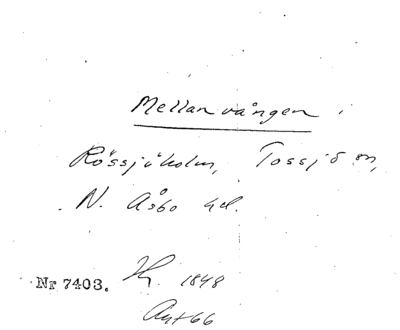 Mellanvången
Rössjöholm, Tossjö sn,
N. Åsbo hd.
Nr 7403. Hy. 1848
Avt 66